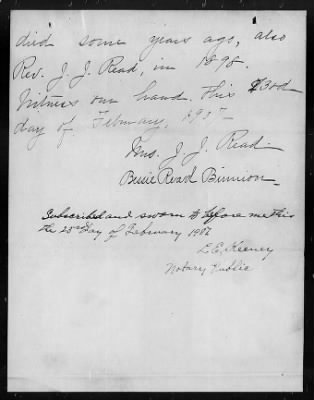 died some years ago, also
Rev. J. J. Read, in 1898.
Witness our hand. This 23rd
day of February, 1907
Mrs. J. J. Read.
Bessie Read Binnion
Subscribed and sworn to before me this
the 23rd day of February 1907
L. E. Keeney
Notary Public